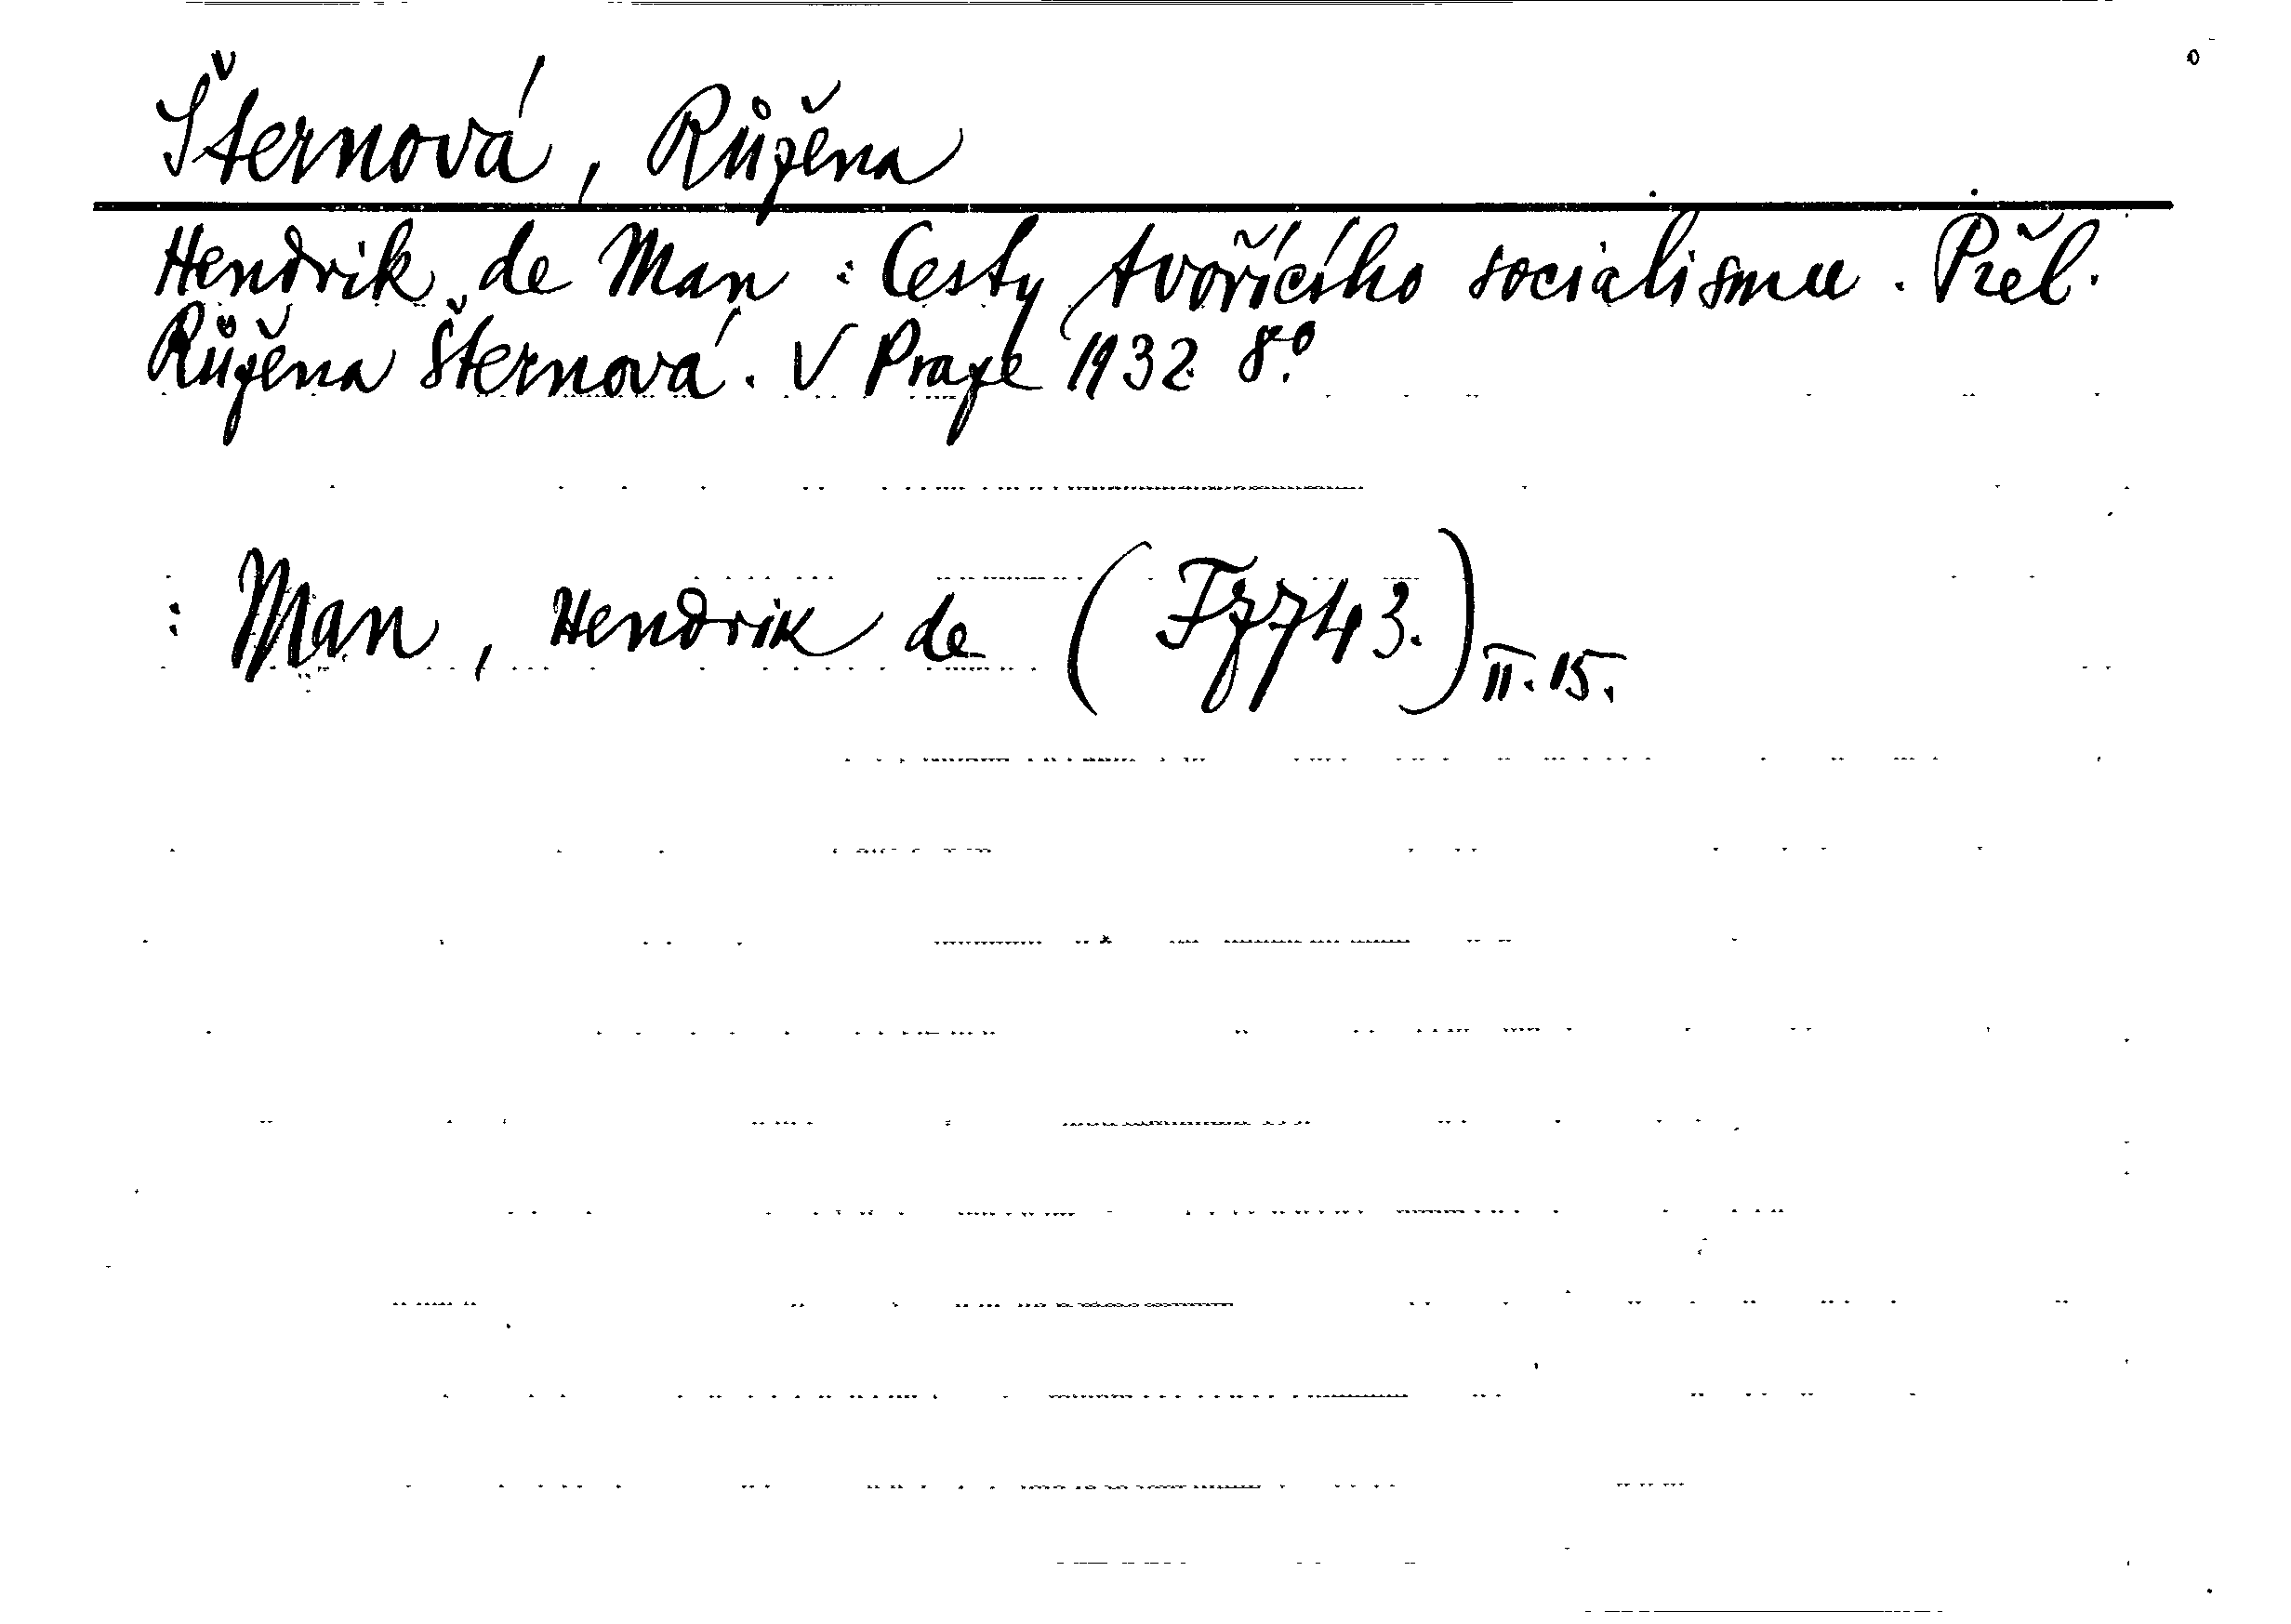 Šternová, Růžena
Hendrik de Man : Cesty tvořícího socialismu. Přel.
Růžena Šternová. V Praze 1932. 8°.
: Man, Hendrik de (Fz743.) II.15.